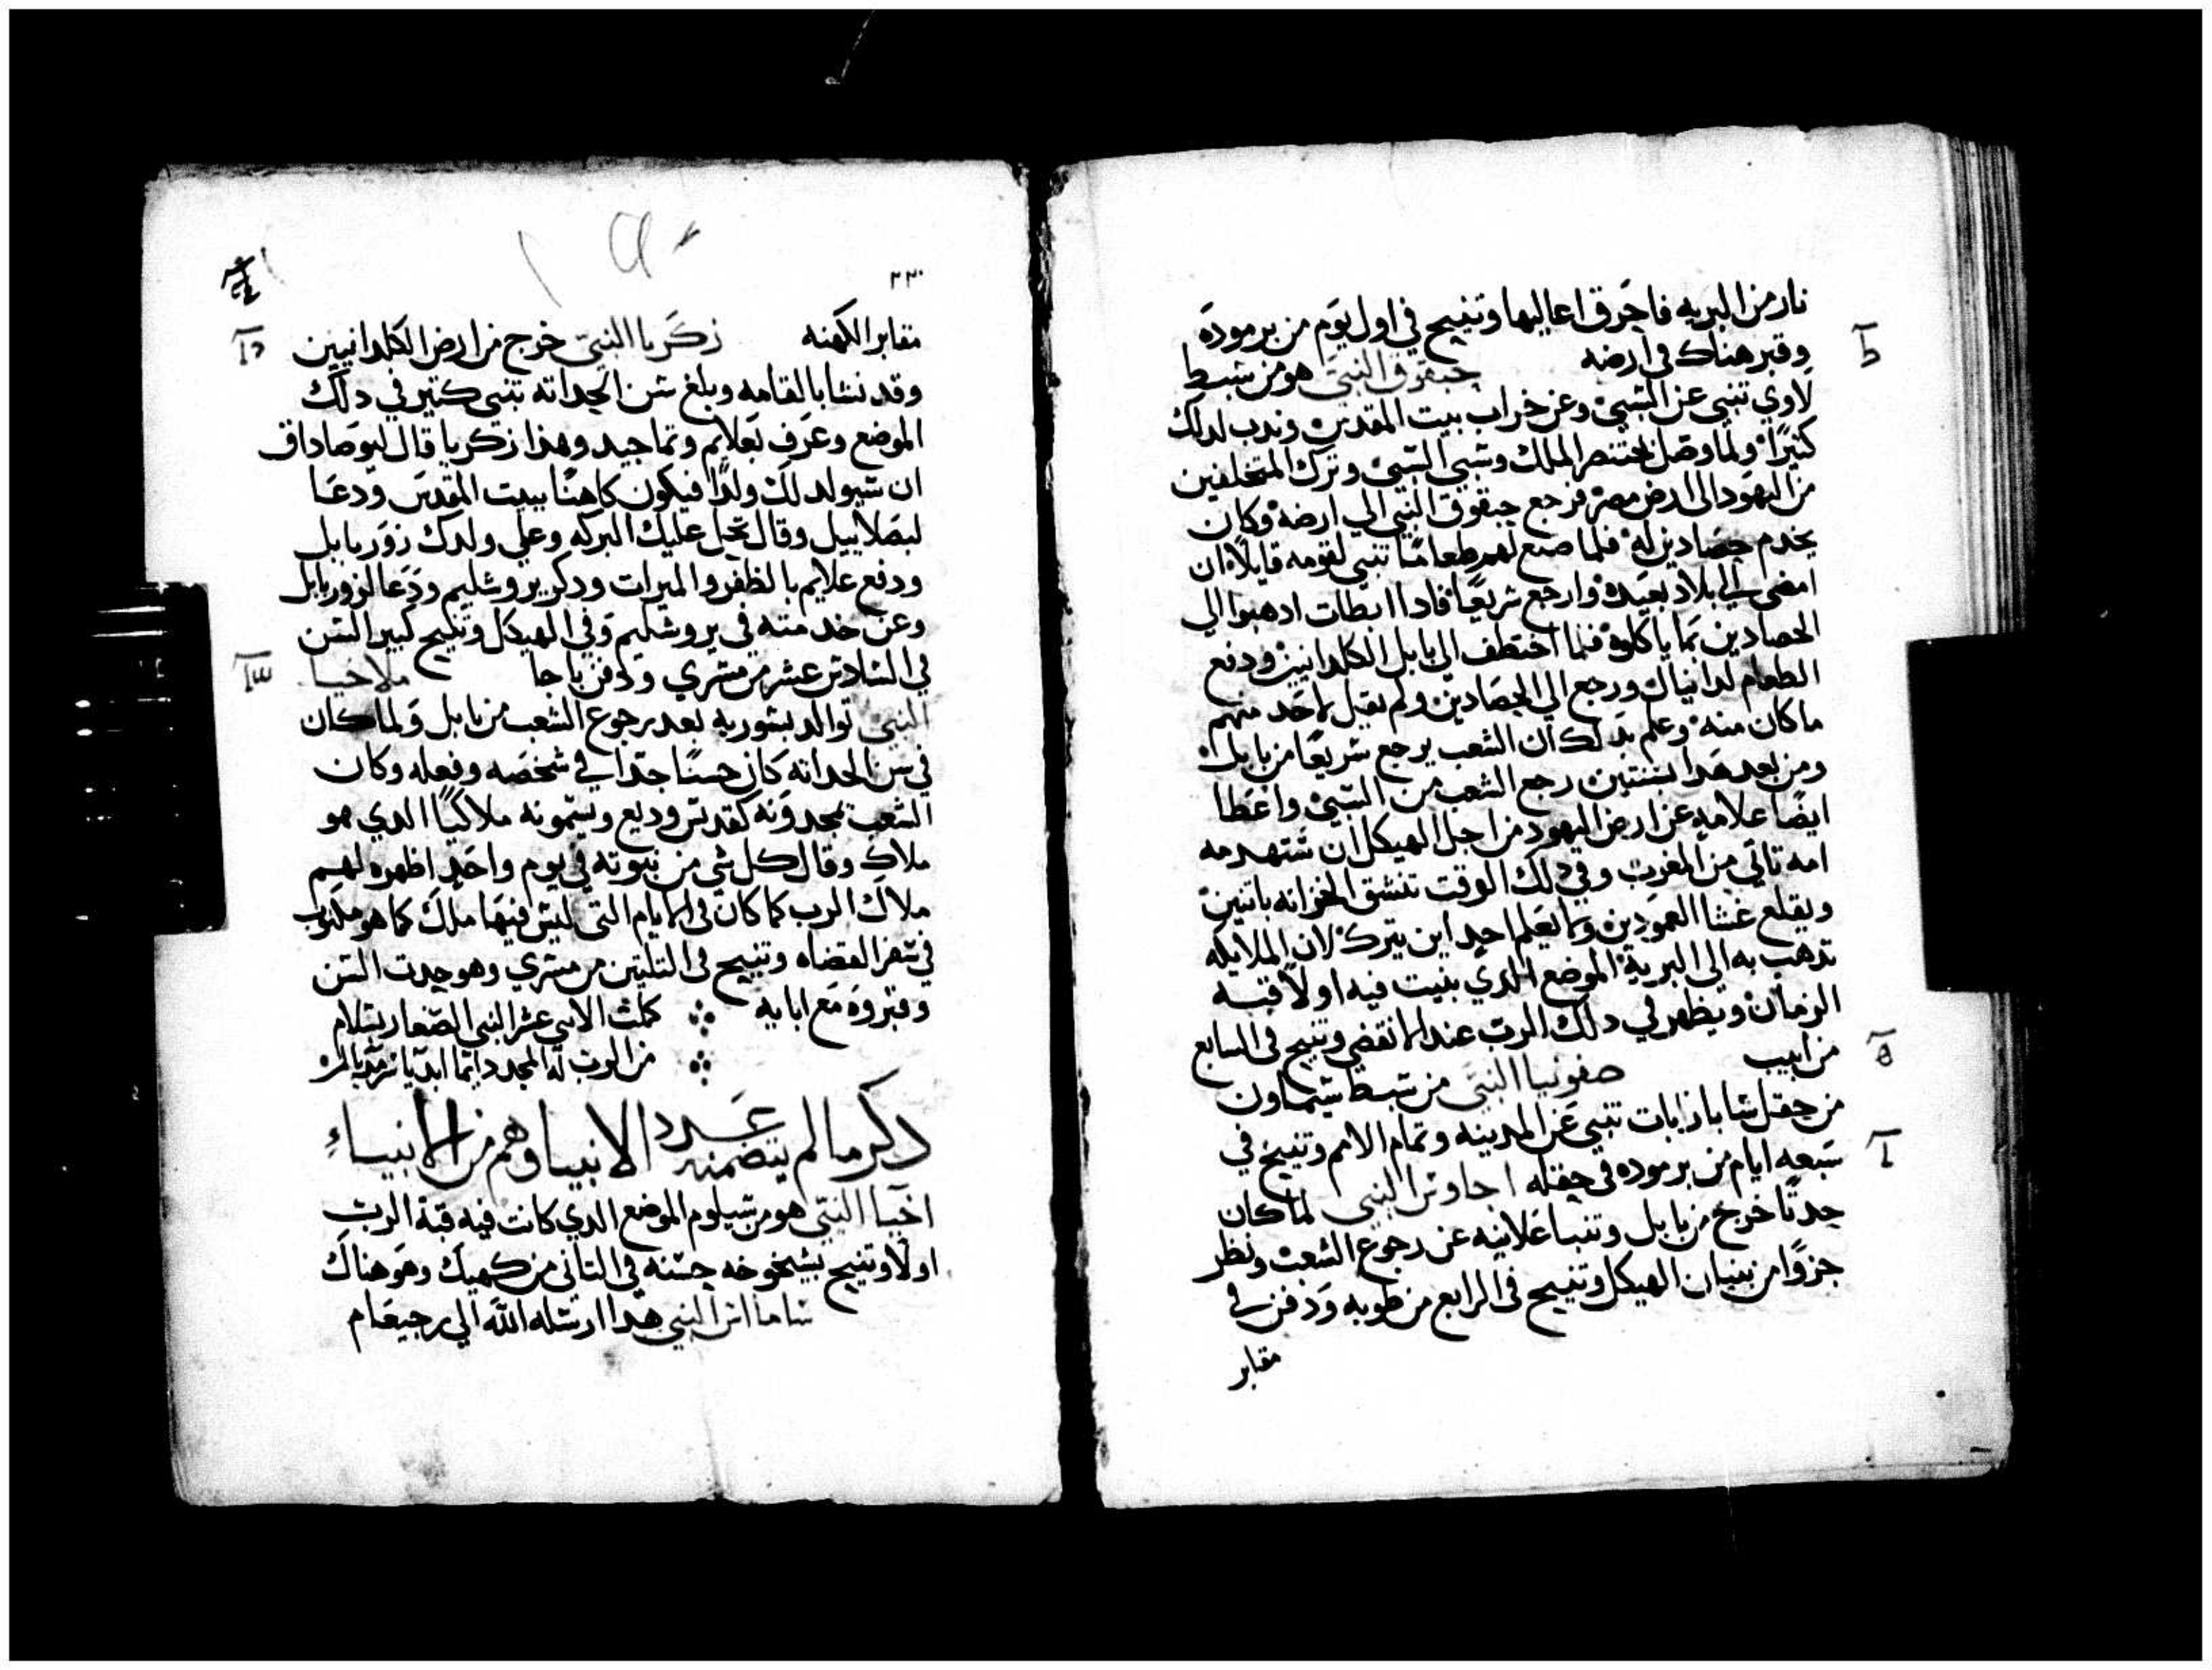 نار من البريه فاحرق اعاليها وتنيح في اول يوم من برموده
وقبر هناك في ارضه حبقوق النبي هو من سبط
لاوي تنبي عن السبي وعن خراب بيت المقدس وندب لدلك
كثيرًا ولما وصل بختنصر الملك وسبي السبي وترك المتخلفين
من اليهود الى ارض مصر فرجع حبقوق النبي الي ارضه وكان
يخدم حصادين له فلما صنع لهم طعامًا تنبي لقومه قايلًا ان
امضى الى بلاد بعيده وارجع سريعًا فادا ابطات ادهبوا الي
الحصادين بما ياكلوه فلما اختطف الي بابل الكلدانيين ودفع
الطعام لدانيال ورجع الي الحصادين ولم يقبل لاحد منهم
ما كان منه وعلم بدلك ان الشعب يرجع سريعًا من بابل
ومن بعد هدا بسنتين رجع الشعب من السبي واعطا
ايضًا علامه عن ارض اليهود من اجل الهيكل ان ستهدمه
امه تاتي من المغرب وفي دلك الوقت تنشق الخزانه باتنين
ويقلع غشا العمودين ولا يعلم احد اين يترك لان الملايكه
تدهب به الى البريه الموضع الدي بنيت فيه اولًا قبه
الزمان ويظهر في دلك الرب عند الانقضي وتنيح في السابع
من ابيب صفونيا النبي من سبط شيماون
من حقل تنبي عن المدينه وتمام الامم وتنيح في
سبعه ايام من برموده في حقله اجاوس النبي لما كان
حدثًا خرج من بابل وتنبا علانيه عن رجوع الشعب ونظر
جزوًا من بنيان الهيكل وتنيح في الرابع من طوبه ودفن في
مقابر
٢٣٠
مقابر الكهنه زكريا النبي خرج من ارض الكلدانيين
وقد نشا بالقامه وبلغ سن الحداته تنبي كتير في دلك
الموضع وعرف بعلايم وتماجيد وهدا زكريا قال ليوصاداق
ان سيولد لك ولدًا فيكون كاهنًا ببيت المقدس ودعا
لبصلاييل وقال تحل عليك البركه وعلي ولدك زوربابل
ودفع علايم بالظفر والميرات ودكر يروشليم ودعا لزوربابل
وعن خدمته في يروشليم وفي الهيكل وتنيح كبير السن
في التلاتين عشر من مسري ودفن ملاخيا
النبي توالد بعد رجوع الشعب من بابل ولما كان
في سن الحداته كان حسنًا جدًا في شخصه وفعله وكان
الشعب يمجدونه كقديس وديع ويسمونه ملاكيًا الدي هو
ملاك وقال كل شي من نبوته في يوم واحد اظهره لهم
ملاك الرب كما كان في الايام التي ليس فيها ملك كما هو مكتوب
في سفر القضاه وتنيح في التلتين من مسري وهو حدت السن
وقبروه مع ابايه كملت الاتني عشر النبي الصغار بسلام
من الرب له المجد دايمًا ابديًا سرمديًا
دكر ما لم يتضمنه عدد الانبيا وهم من الانبياء
اخيا النبي هو من شيلوم الموضع الدي كانت فيه قبة الرب
اولًا وتنيح بشيخوخه حسنه في التاني من كهيك وهو هناك
النبي هدا ارسله الله الي رحبعام